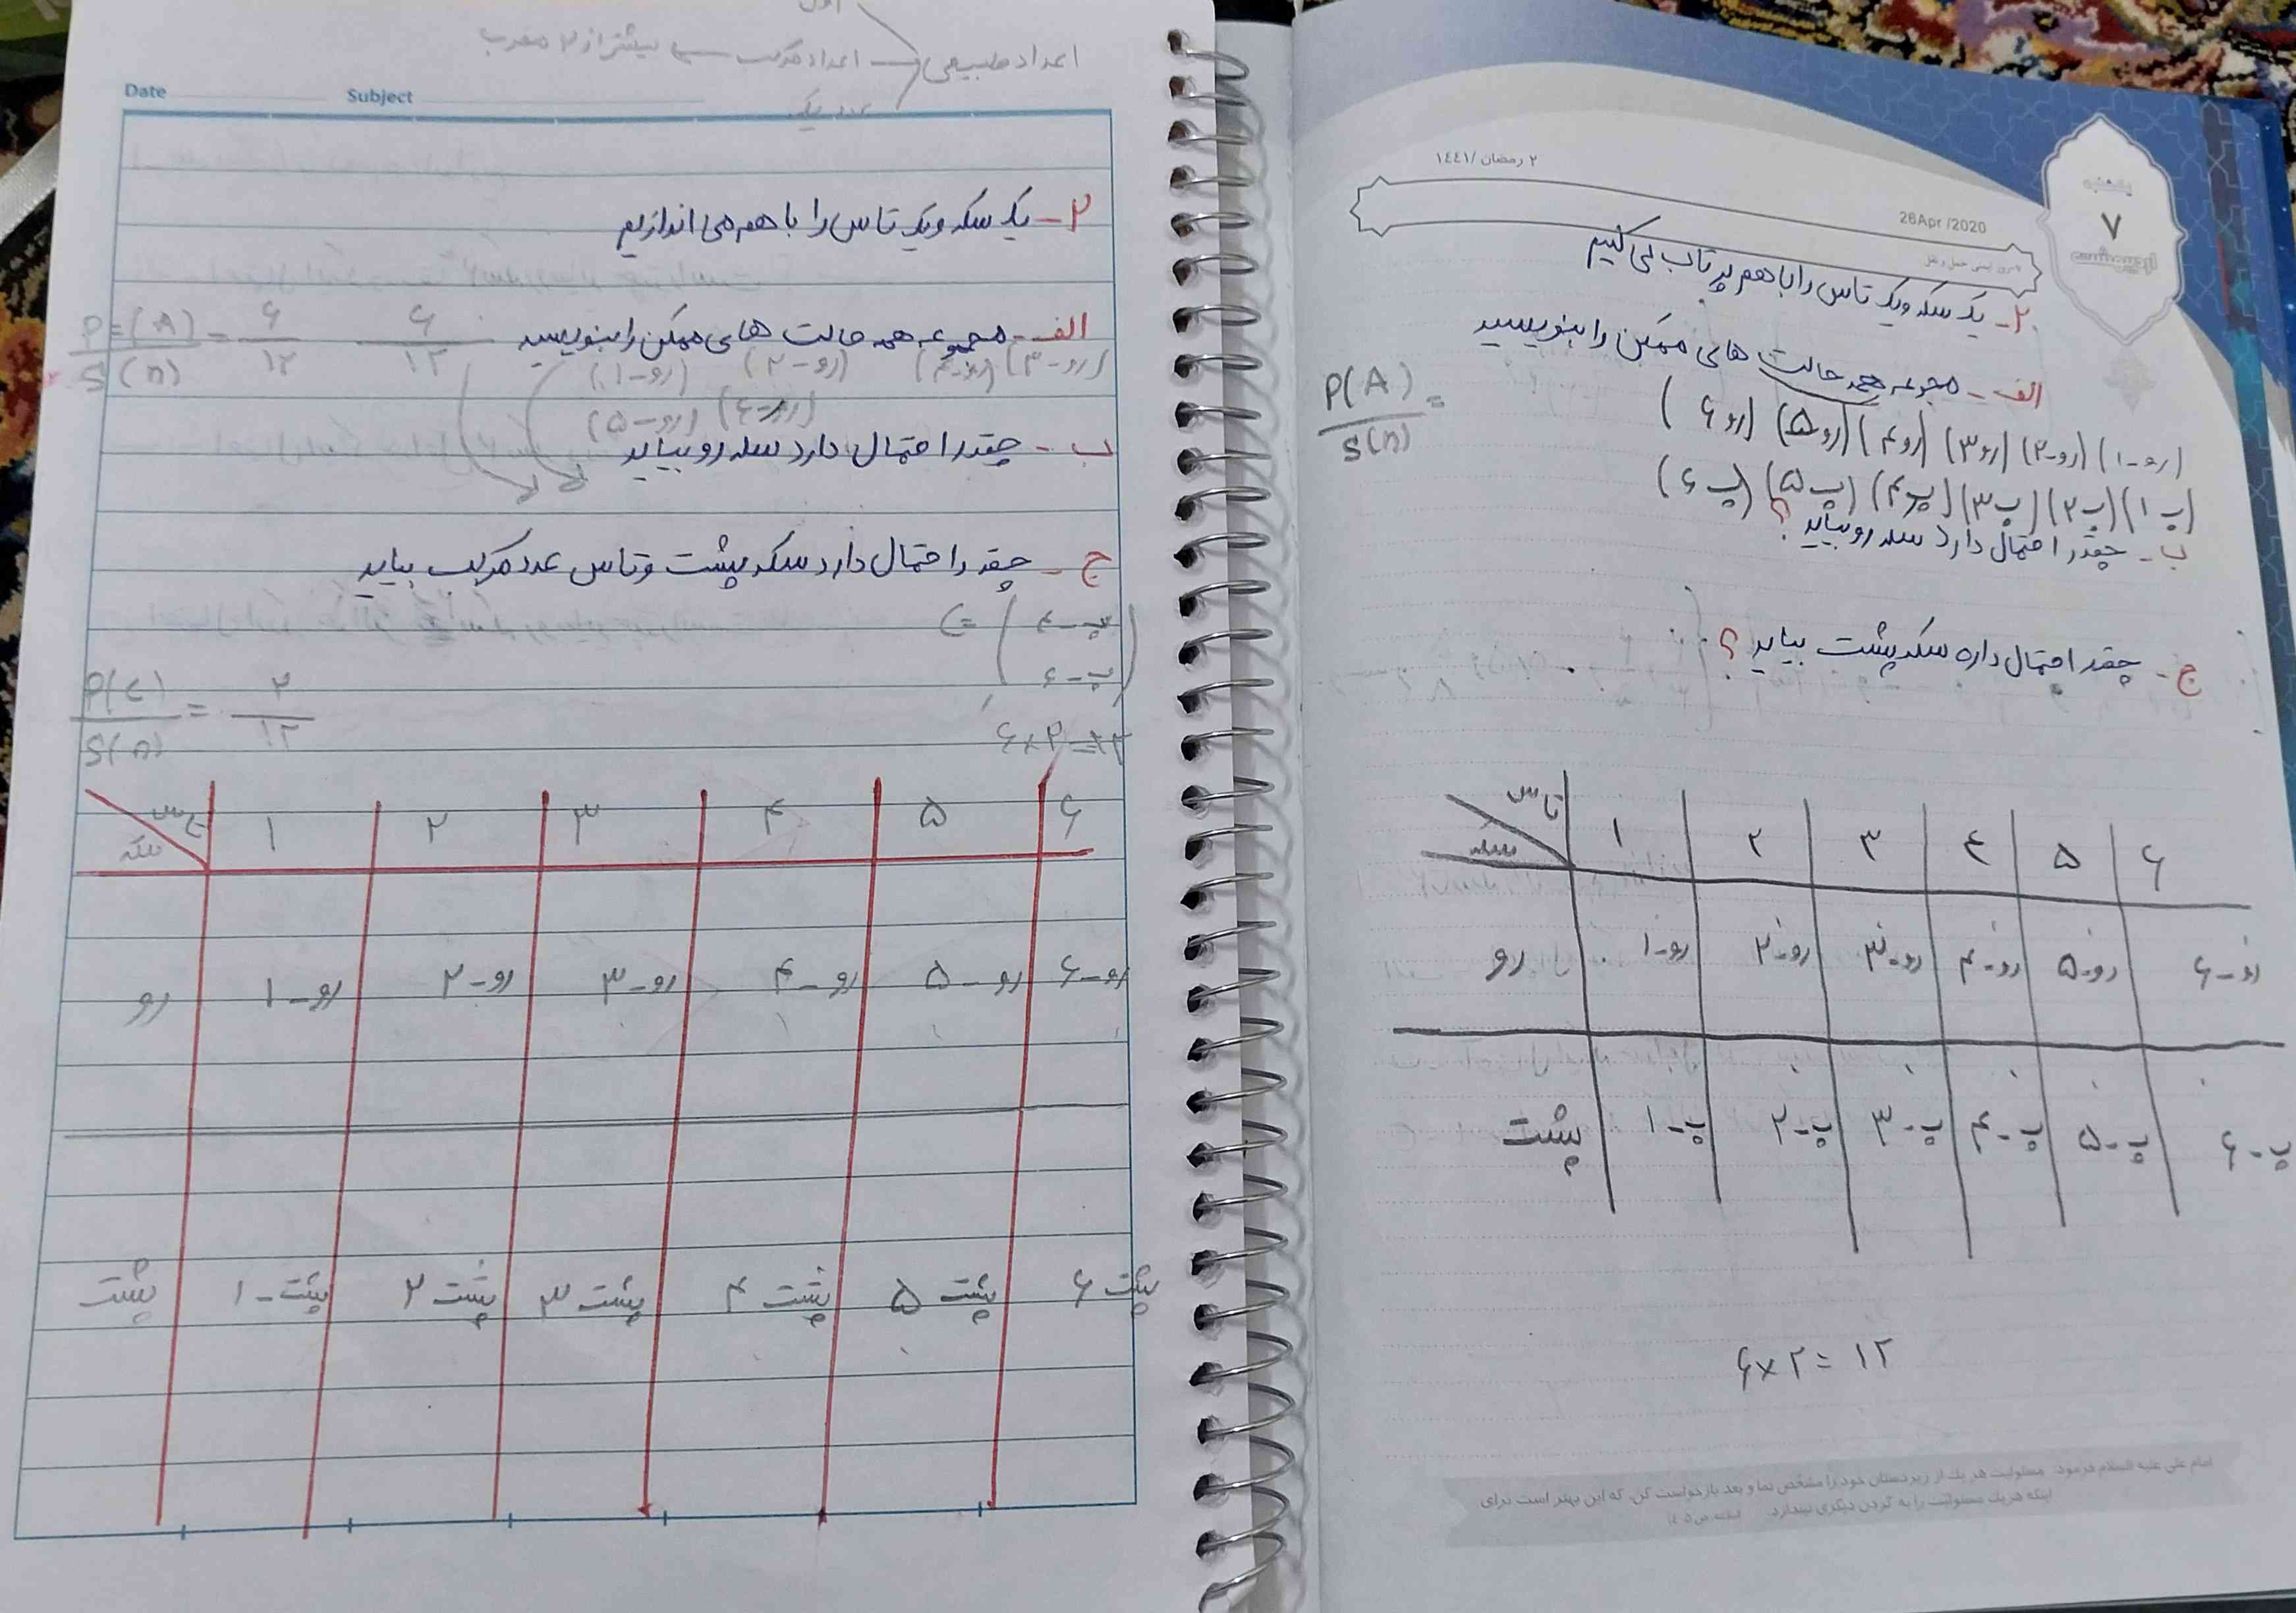 اعداد طبیعی
اعداد مرکب
بیشتر از ۲
Date
Subject
۲- یک سکه و یک تاس را با هم می اندازیم
الف- مجموعه همه حالت های ممکن را بنویسید
P=(A)/S(n) = ۶/۱۲ ۶/۱۲
(رو-۳) (رو-۴) (رو-۲) (رو-۱)
(رو-۶) (رو-۵)
ب- چقدر احتمال دارد سکه رو بیاید
ج- چقدر احتمال دارد سکه پشت و تاس عدد مرکب بیاید
پ-۴
پ-۶
P(c)/S(n) = ۲/۱۲
۶×۲=۱۲
تاس ۱ ۲ ۳ ۴ ۵ ۶
سکه
رو رو-۱ رو-۲ رو-۳ رو-۴ رو-۵ رو-۶
پشت پشت-۱ پشت ۲ پشت ۳ پشت ۴ پشت ۵ پشت ۶
۲ رمضان /١٤٤١
26Apr /2020
یکشنبه
۷
اردیبهشت
۲- یک سکه و یک تاس را با هم پرتاب می کنیم
الف- مجموعه همه حالت های ممکن را بنویسید
P(A)/S(n) =
(رو-۱) (رو-۲) (رو۳) (رو۴) (رو۵) (رو۶)
(پ۱) (پ۲) (پ۳) (پ۴) (پ۵) (پ۶)
ب- چقدر احتمال دارد سکه رو بیاید؟
ج- چقدر احتمال داره سکه پشت بیاید؟
تاس ۱ ۲ ۳ ٤ ۵ ۶
سکه
رو رو-۱ رو-۲ رو-۳ رو-۴ رو-۵ رو-۶
پشت پ-۱ پ-۲ پ-۳ پ-۴ پ-۵ پ-۶
۶×۲=۱۲
امام علی علیه السلام فرمود: مسئولیت هر یک از زیردستان خود را مشخص نما و بعد بازخواست کن، که این بهتر است برای
اینکه هریک مسئولیت را به گردن دیگری نیندازد.